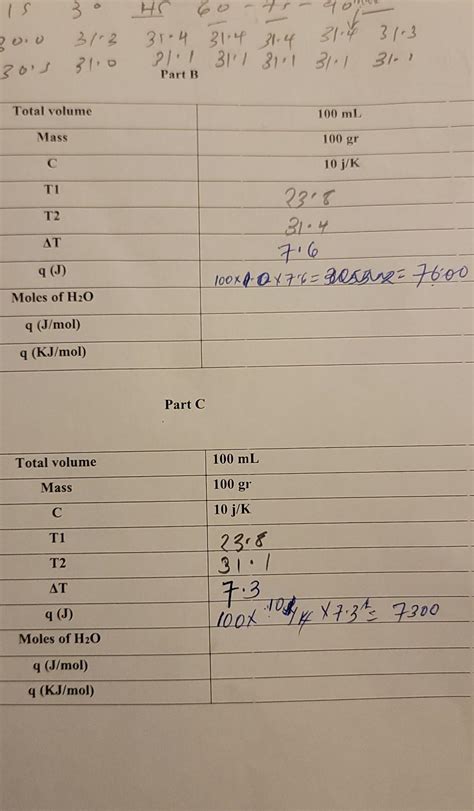 15 30 45 60 - 75 - 90
30.0 31.3 31.4 31.4 31.4 31.4 31.3
30.5 31.0 31.1 31.1 31.1 31.1 31.1
Part B
Total volume 100 mL
Mass 100 gr
C 10 j/K
T1 23.8
T2 31.4
ΔT 7.6
q (J) 100x10x7.6= = 7600
Moles of H2O
q (J/mol)
q (KJ/mol)
Part C
Total volume 100 mL
Mass 100 gr
C 10 j/K
T1 23.8
T2 31.1
ΔT 7.3
q (J) 100x 10 x7.3= 7300
Moles of H2O
q (J/mol)
q (KJ/mol)